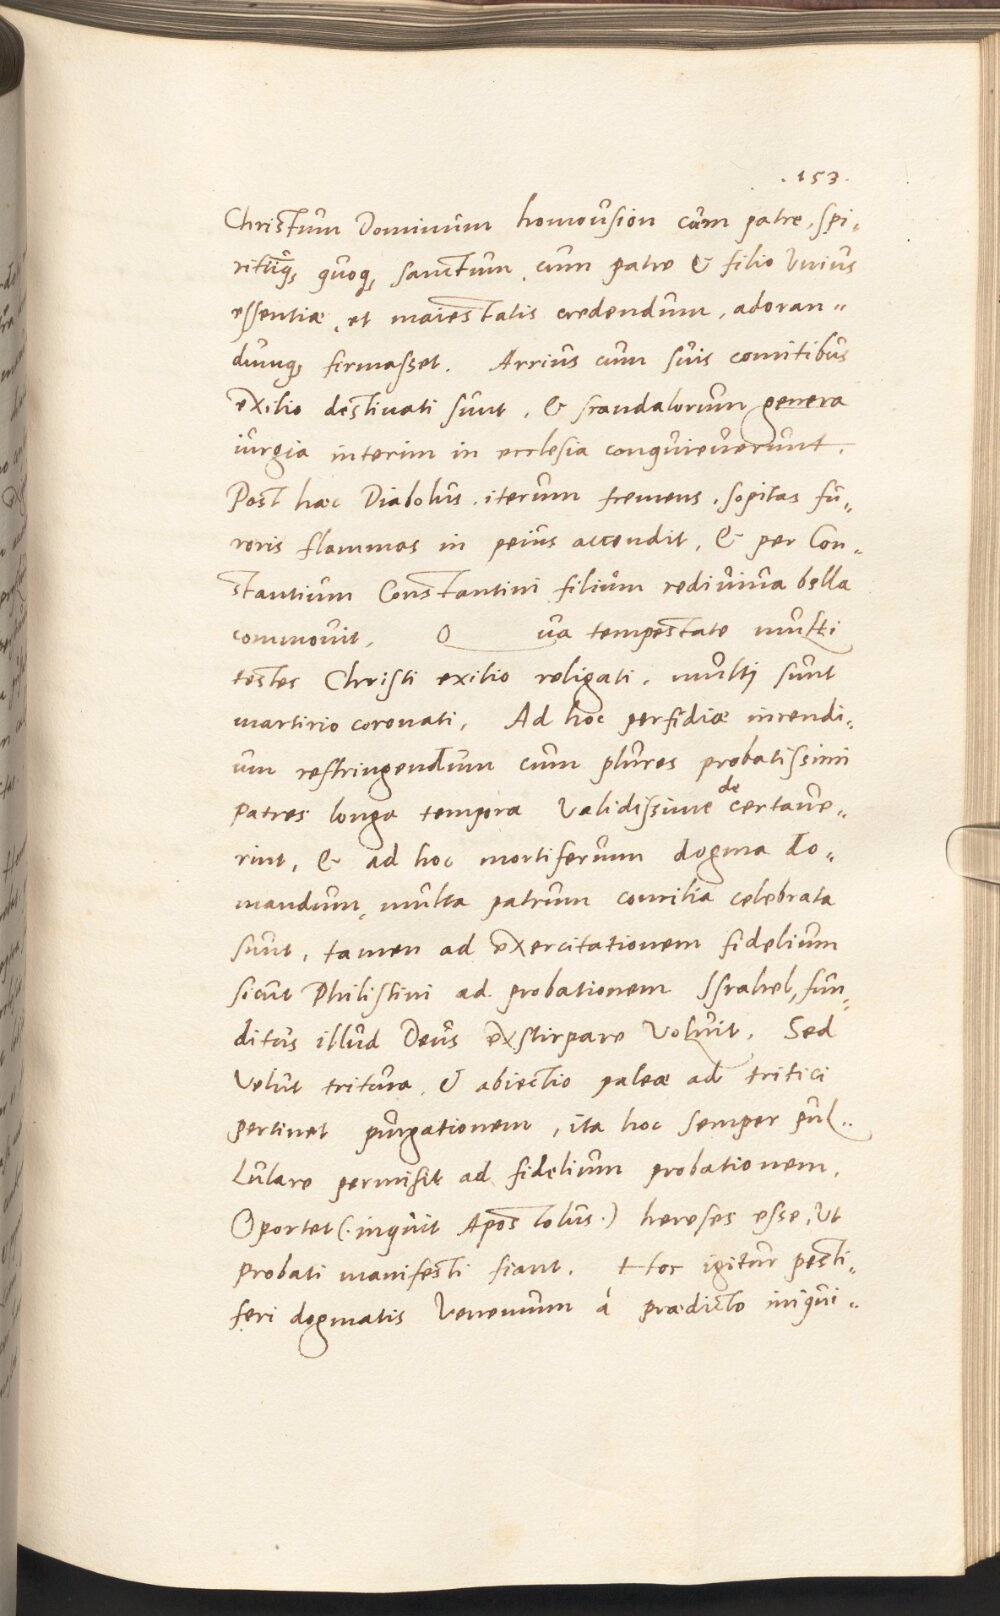 .153.
Christum Dominum homousion cum patre, spi„
ritūq, quoq, sanctum cum patre & filio Unius
essentiæ, et maiestatis credendum, adoran„
dumq, firmasset. Arrius cum suis comitibus
exilio destinati sunt, & scandalorum genera
iurgia interim in ecclesia conquieuerunt.
Post hæc Diabolus iterum fremens, sopitas fu„
roris flammas in peius accendit, & per Con„
stantium Constantini filium rediuiua bella
commouit, Q ua tempestate multi
testes Christi exilio religati, multj sunt
martirio coronati, Ad hoc perfidiæ incendi„
um restringendum cum plures probatissimi
Patres longa tempora Validissime decertaue„
rint, & ad hoc mortiferum dogma do„
mandum, multa patrum concilia celebrata
sunt, tamen ad exercitationem fidelium
sicut Philistini ad probationem Israhel, fun„
ditus illud Deus exstirpare Voluit, Sed
Velut tritura, & abiectio paleæ ad tritici
pertinet purgationem, ita hoc semper pul„
lulare permisit ad fidelium probationem,
Oportet (. inquit Apostolus.) hereses esse, Ut
probati manifesti fiant. Hoc igitur pesti„
feri dogmatis Venenum á prædicto iniqui„